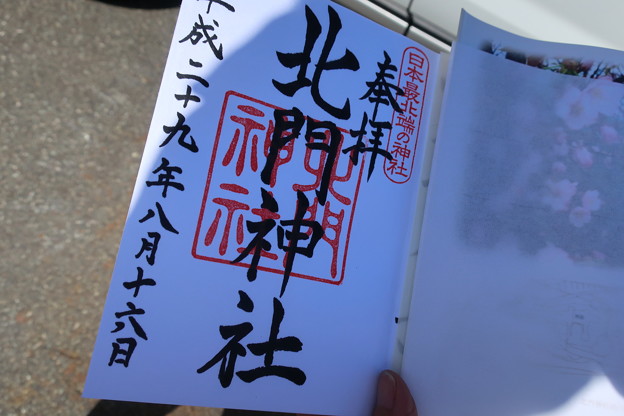 日本最北端の神社
奉拝
北門神社
北門
神社
平成二十九年八月十六日